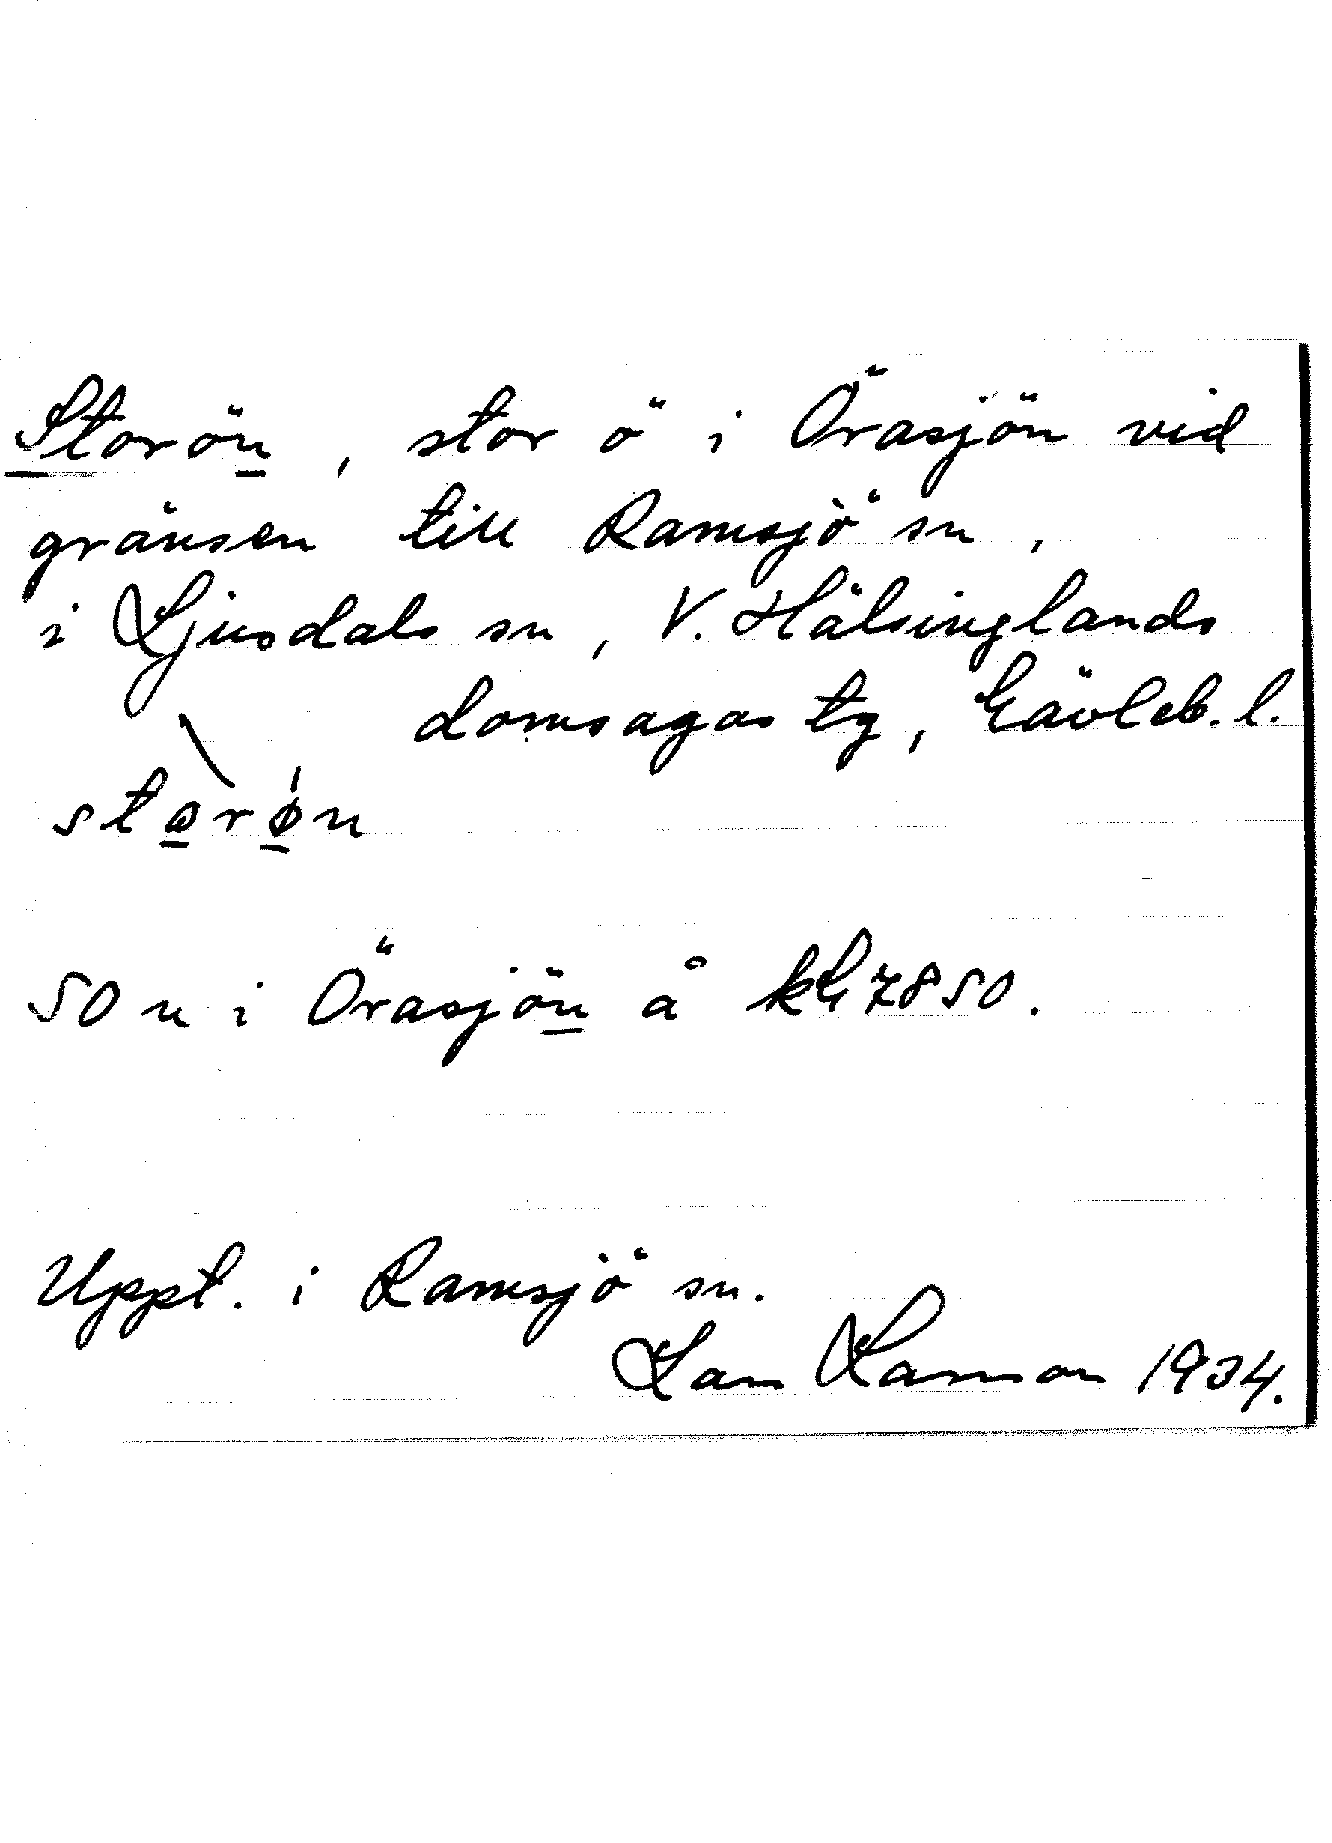 Storön, stor ö i Örasjön vid
gränsen till Ramsjö sn,
i Ljusdals sn, V. Hälsinglands
domsagas tg, Gävleb. l.
storø̀n
50 n i Örasjön å kL 7850.
Uppt. i Ramsjö sn.
Lars Larsson 1934.